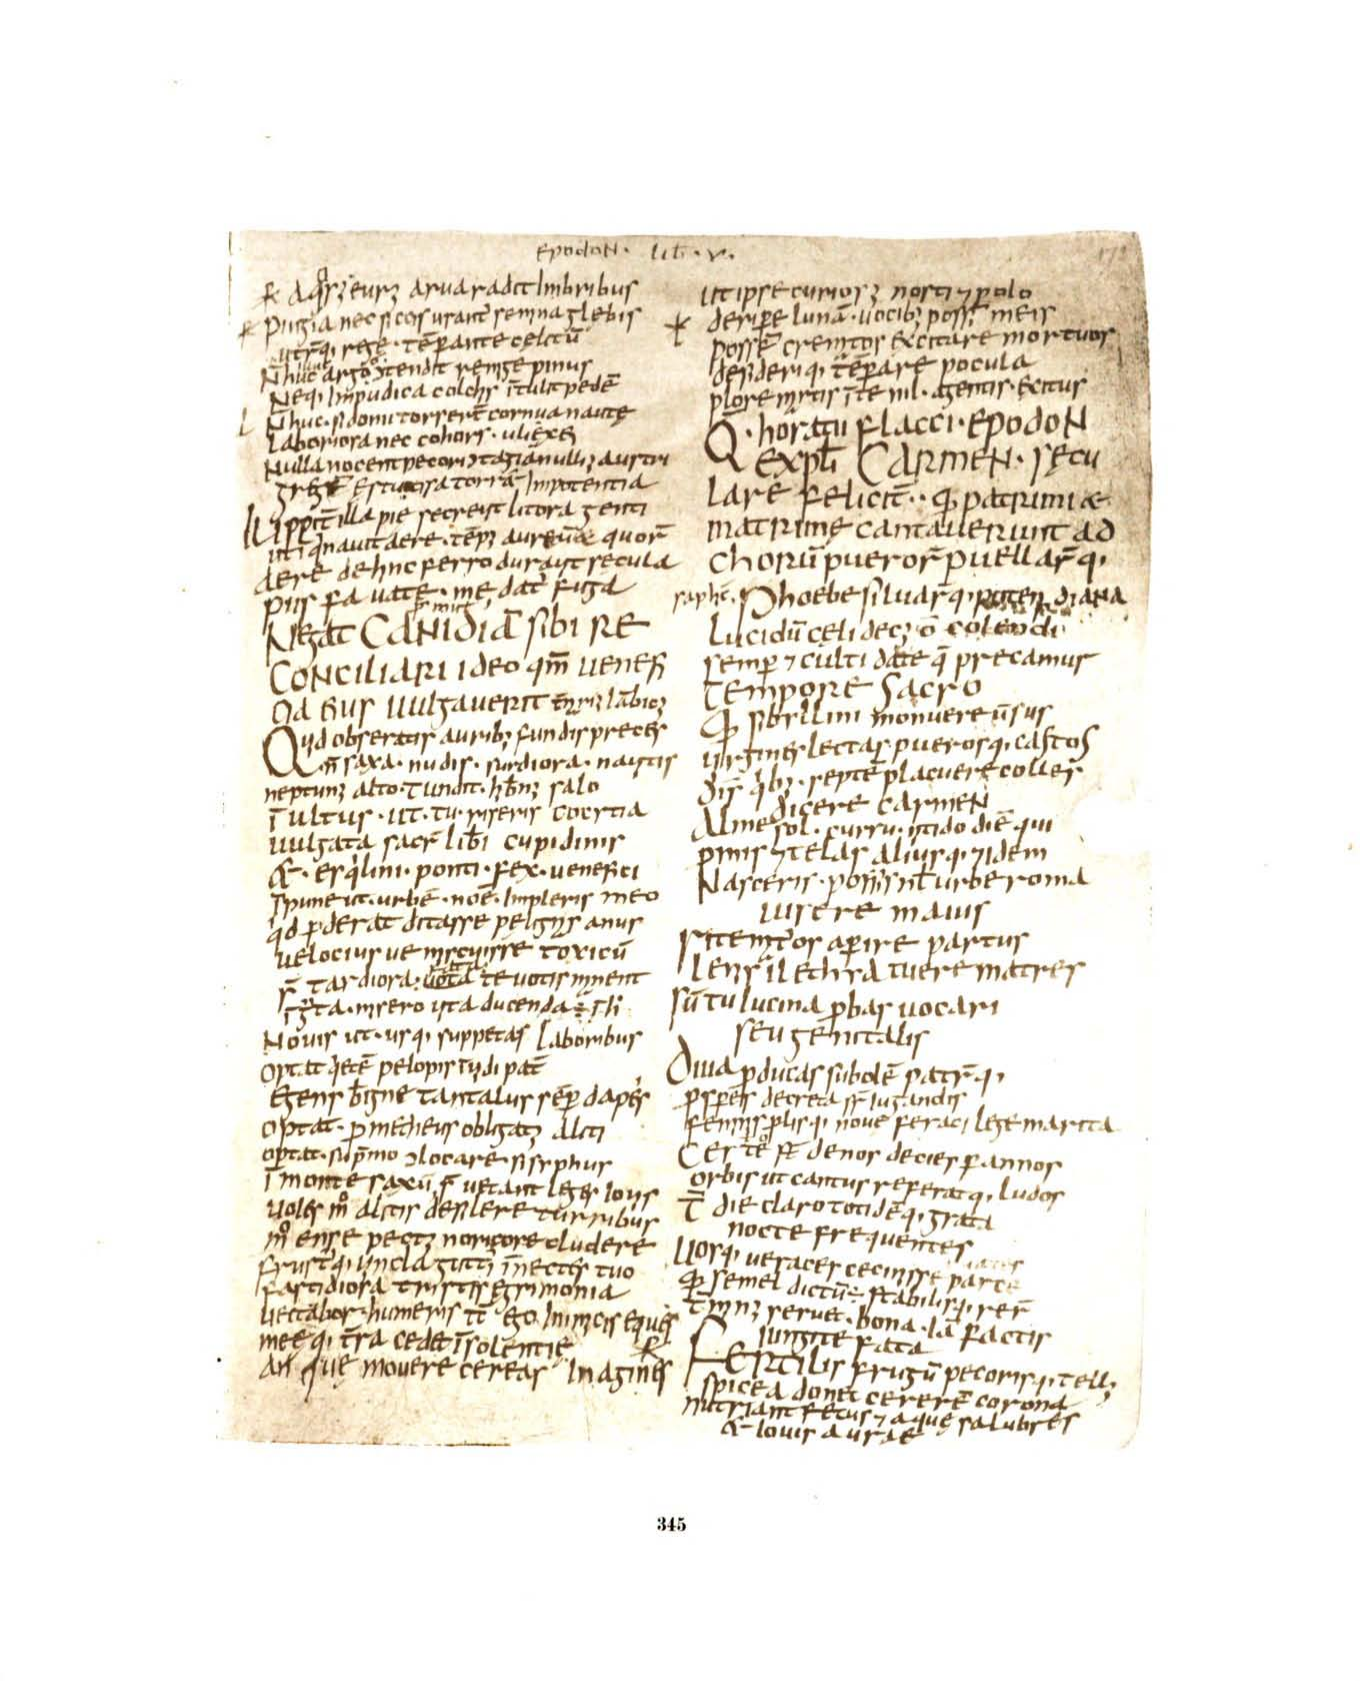 EpodoN · lib̄ · v ·
aqꝫ eurꝫ arua radit Imbribus
Pingia nec siccis urant̄ semina glebis
utrq̄; regę · tēperante cęlitū
N̄ huc argōo ↄtendit remige pinus
Neq; Impudica colchis ītulit pedē
N̄ huc · sidonii torserē cornua nautę
Laboriosa nec cohors · ulixei
Nulla nocent pecori ↄtagia nulliꝫ austri
gregē ęstuosa torrā Impotentia
Iuppit̄ illa pie secreuit litora genti
ut inqnauit aere · tēpꝫ aureū quoꝝ
aere dehinc ferro durauit secula
piis s̄a uate · me dat̄ fuga
Negat CaNIdIĀ sibi RE
CONCILIARI Ideo qm̄ uenefi
cia ei̅us uulgauerit
Qiid obseratis auribꝫ fundis preces
n̄ saxa · nudis · surdiora · nautis
neptunꝫ alto · tundit · hib̄nꝫ salo
īultus · ut · tu · riseris cocytia
uulgata sacr̄ lib̄i cupidinis
& · esqlini · ponti · fex · uenefici
Inpune ut · urbē · noē · Impleris meo
qd p̄derat ditasse pelignis anus
uelocius ue miscuisse toxicū
s̄ tardiora · te uotis manent
īgta · misero uita ducenda
Nouis ut · usq; suppetas Laboribus
optat qetē pelopis īfidi pat̄
Egens b̄igne tantalus sēp̄ dapis
optat · p̄metheus obligatꝫ aliti
optat · sup̄mo ↄlocare sisyphus
ī monte saxū s̄ uetant leges Iouis
uoles m̊ altis desilere turribus
m̊ ense pectꝫ norico recludere
frustq̄; uincla gutti īnectes tuo
fastidiosa tristis ęgrimonia
uectabor · humeris tc̄ ego Inimicis eques
meę q; tr̄a cedet īsolentię
an que mouere cereas Inagines
ut ipse curiosꝫ nosti ⁊ polo
deripe lunā · uocibꝫ possī meis
possē crematos excitare mortuos
desideri q; tēperare pocula
plore artis īte nil · agentis · exitus
Q · horatii flacci · EpodoN
Expl̄ CaRMEN · sęcu
lare felicit̄ · qd patrimi æ
matrimę cantauerunt ad
chorū pueroꝝ puellaꝝ q;
saphic̄ · Phoebe siluaꝝ q; poten diaNa
Lucidū cęli decꝫ ō colendi
semp̄ ⁊ culti date q̄ precamus
TEmpoRE Sacro
Qd sibillini monuere ūsus
uirgines lectas · pueros q; castos
diis qbꝫ · septē placuere colles
dicere carmeN
Alme sol · curru · nitido diē · qui
pmis ⁊ celas alius q; ⁊ idem
Nasceris · possis nil urbe roma
uisere maius
rite matos aperire partus
Lenis īlethyia tuere matres
siū tu lucina p̄bas uocari
seu genitalis
Diua p̄ducas subolē patꝝ q;
psp̄eis decreta sr̄ Iugandis
feminis plis q; nouę feraci lege marita
Certꝫ ut denos decies p̄ annos
orbis ut cantus referat q; Ludos
T̄ die claro totidē q; grata
nocte frequentes
Uos q; ueraces cecinisse parcę
qd semel dictū ÷ stabilis q; reꝝ
t̄minꝫ seruet · bona · iā factis
Iungite fata
FERTilis frugū pecoris q; tellꝫ
spicea donet cererē corona
nutriant fętus ⁊ aquę salubres
& Iouis aurae
345